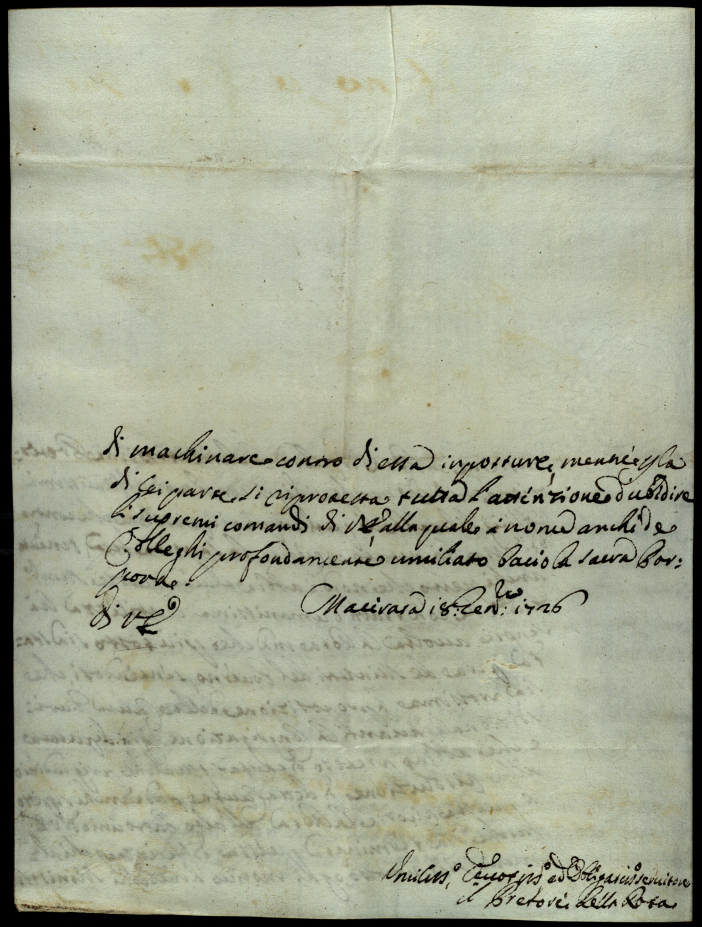 di machinare contro di essa imposture, mentre p la
di lei parte si riprotesta tutta l'attenzione d'ubidire
li supremi comandi di VE alla quale à nome anche de
Colleghi profondamente umiliato bacio la sacra Por:
pora
di VE Macerata 18: Gen.ro 1726
Umiliss.o Devotiss.o ed Obligatiss.o servitore
Il Pretore della Rota